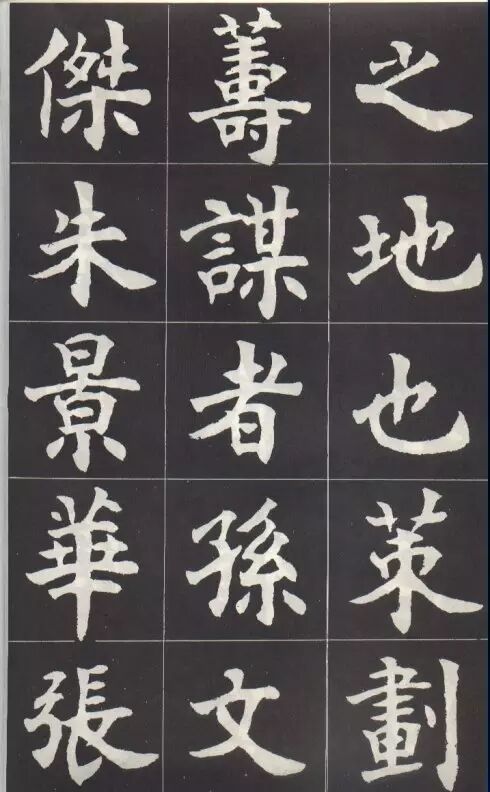 之地也策劃
籌謀者孫文
傑朱景華張